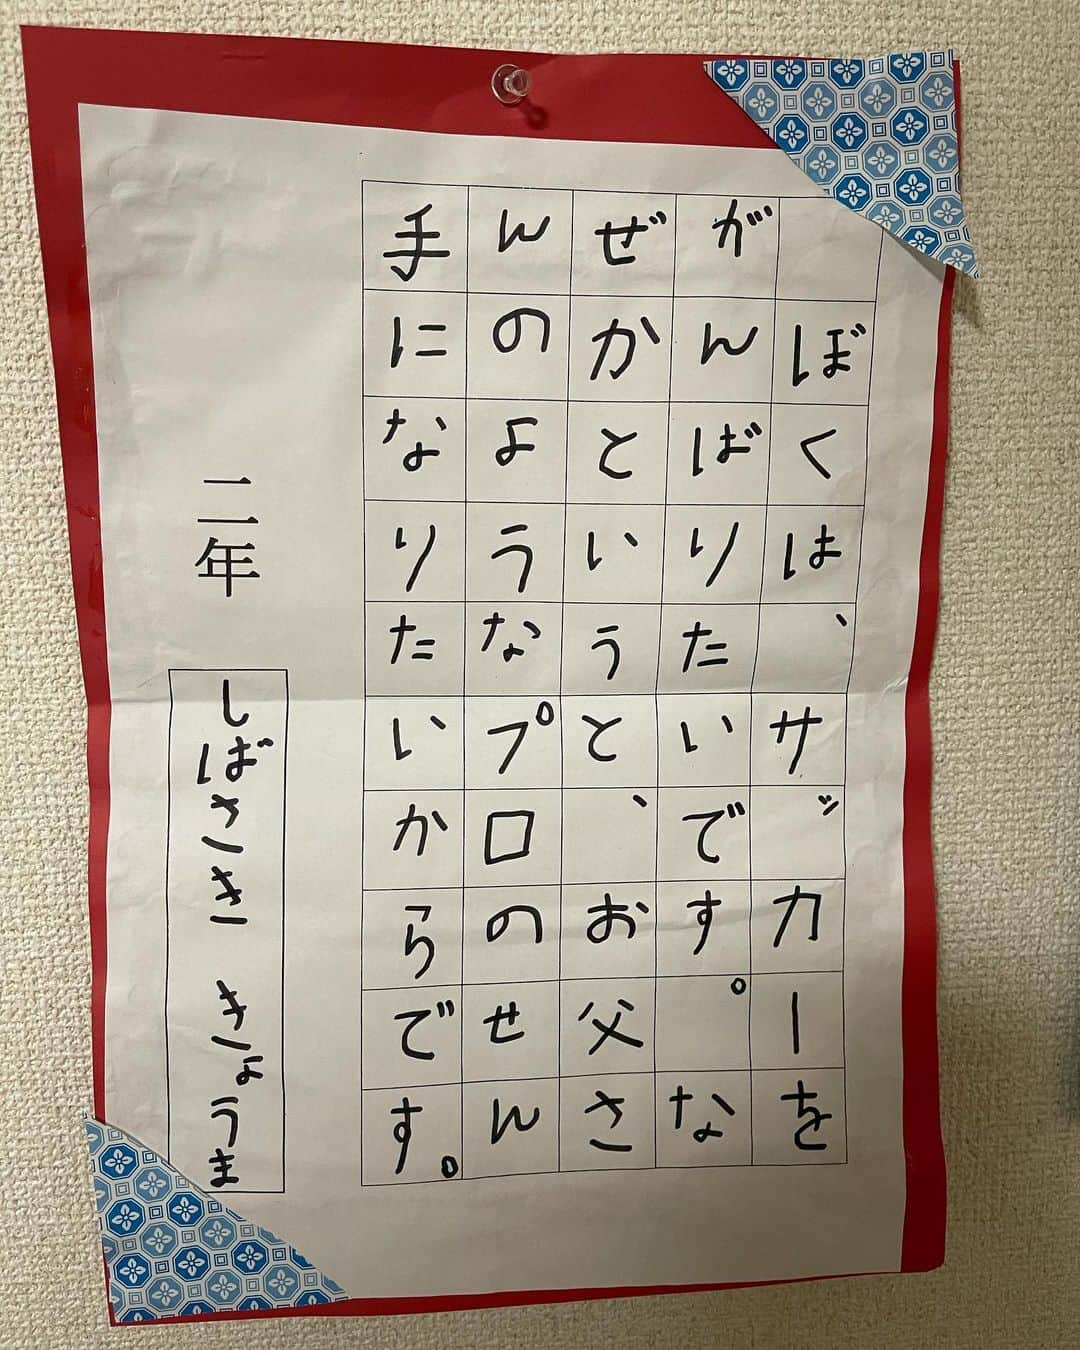 ぼくは、サッカーを
がんばりたいです。な
ぜかというと、お父さ
んのようなプロのせん
手になりたいからです。
二年
しばさき きょうま